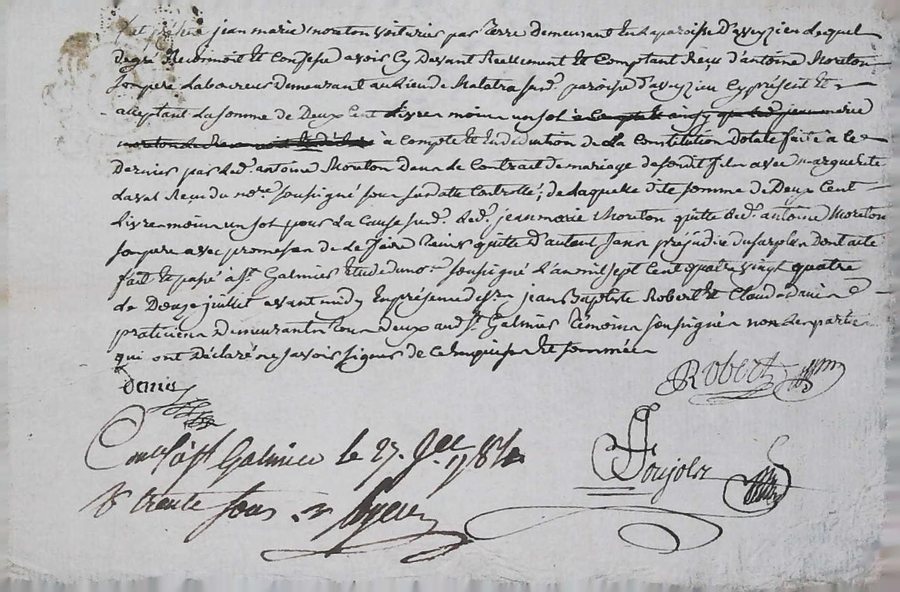 jean marie moreton voiturier par terre demeurant en la paroisse d'aveizieu lequel
de gré Reconnoit et Confesse avoir Cy Devant Reellement et Comptant Reçu d'antoine Moreton
son pere Laboureur Demeurant au Lieu de Malatra susd. paroisse d'aveizieu Cy présent Et
acceptant La somme de Deux Cent Livres moins un sol
à Compte Et En Deduction de La Constitution Dotale faite à Ce
Dernier par Led. antoine Moreton Dans Le Contrat de mariage de son dit fils avec marguerite
Laval Reçu du nore. soussigné sous sa date Controllé; de Laquelle dite somme de Deux Cent
Livres moins un sol pour La Cause susd. Led. jean marie Moreton quitte Led. antoine Moreton
son pere avec promesse de Le faire tenir quitte d'autant sans préjudice du surplus dont acte
fait Et passé à St. Galmier Etude du nore. soussigné L'an mil sept Cent quatre vingt quatre
Le Douze juillet avant midy En présence de jean Baptiste Robert Et Claude Denis
praticiens Demeurants tous Deux aud. St. Galmier témoins soussignés non Les parties
qui ont Déclaré ne savoir signer de Ce Enquises Et sommées
Denis
Robert
Conlé à St Galmier Le 27. Jet 1784
R trente sous
Poujolz